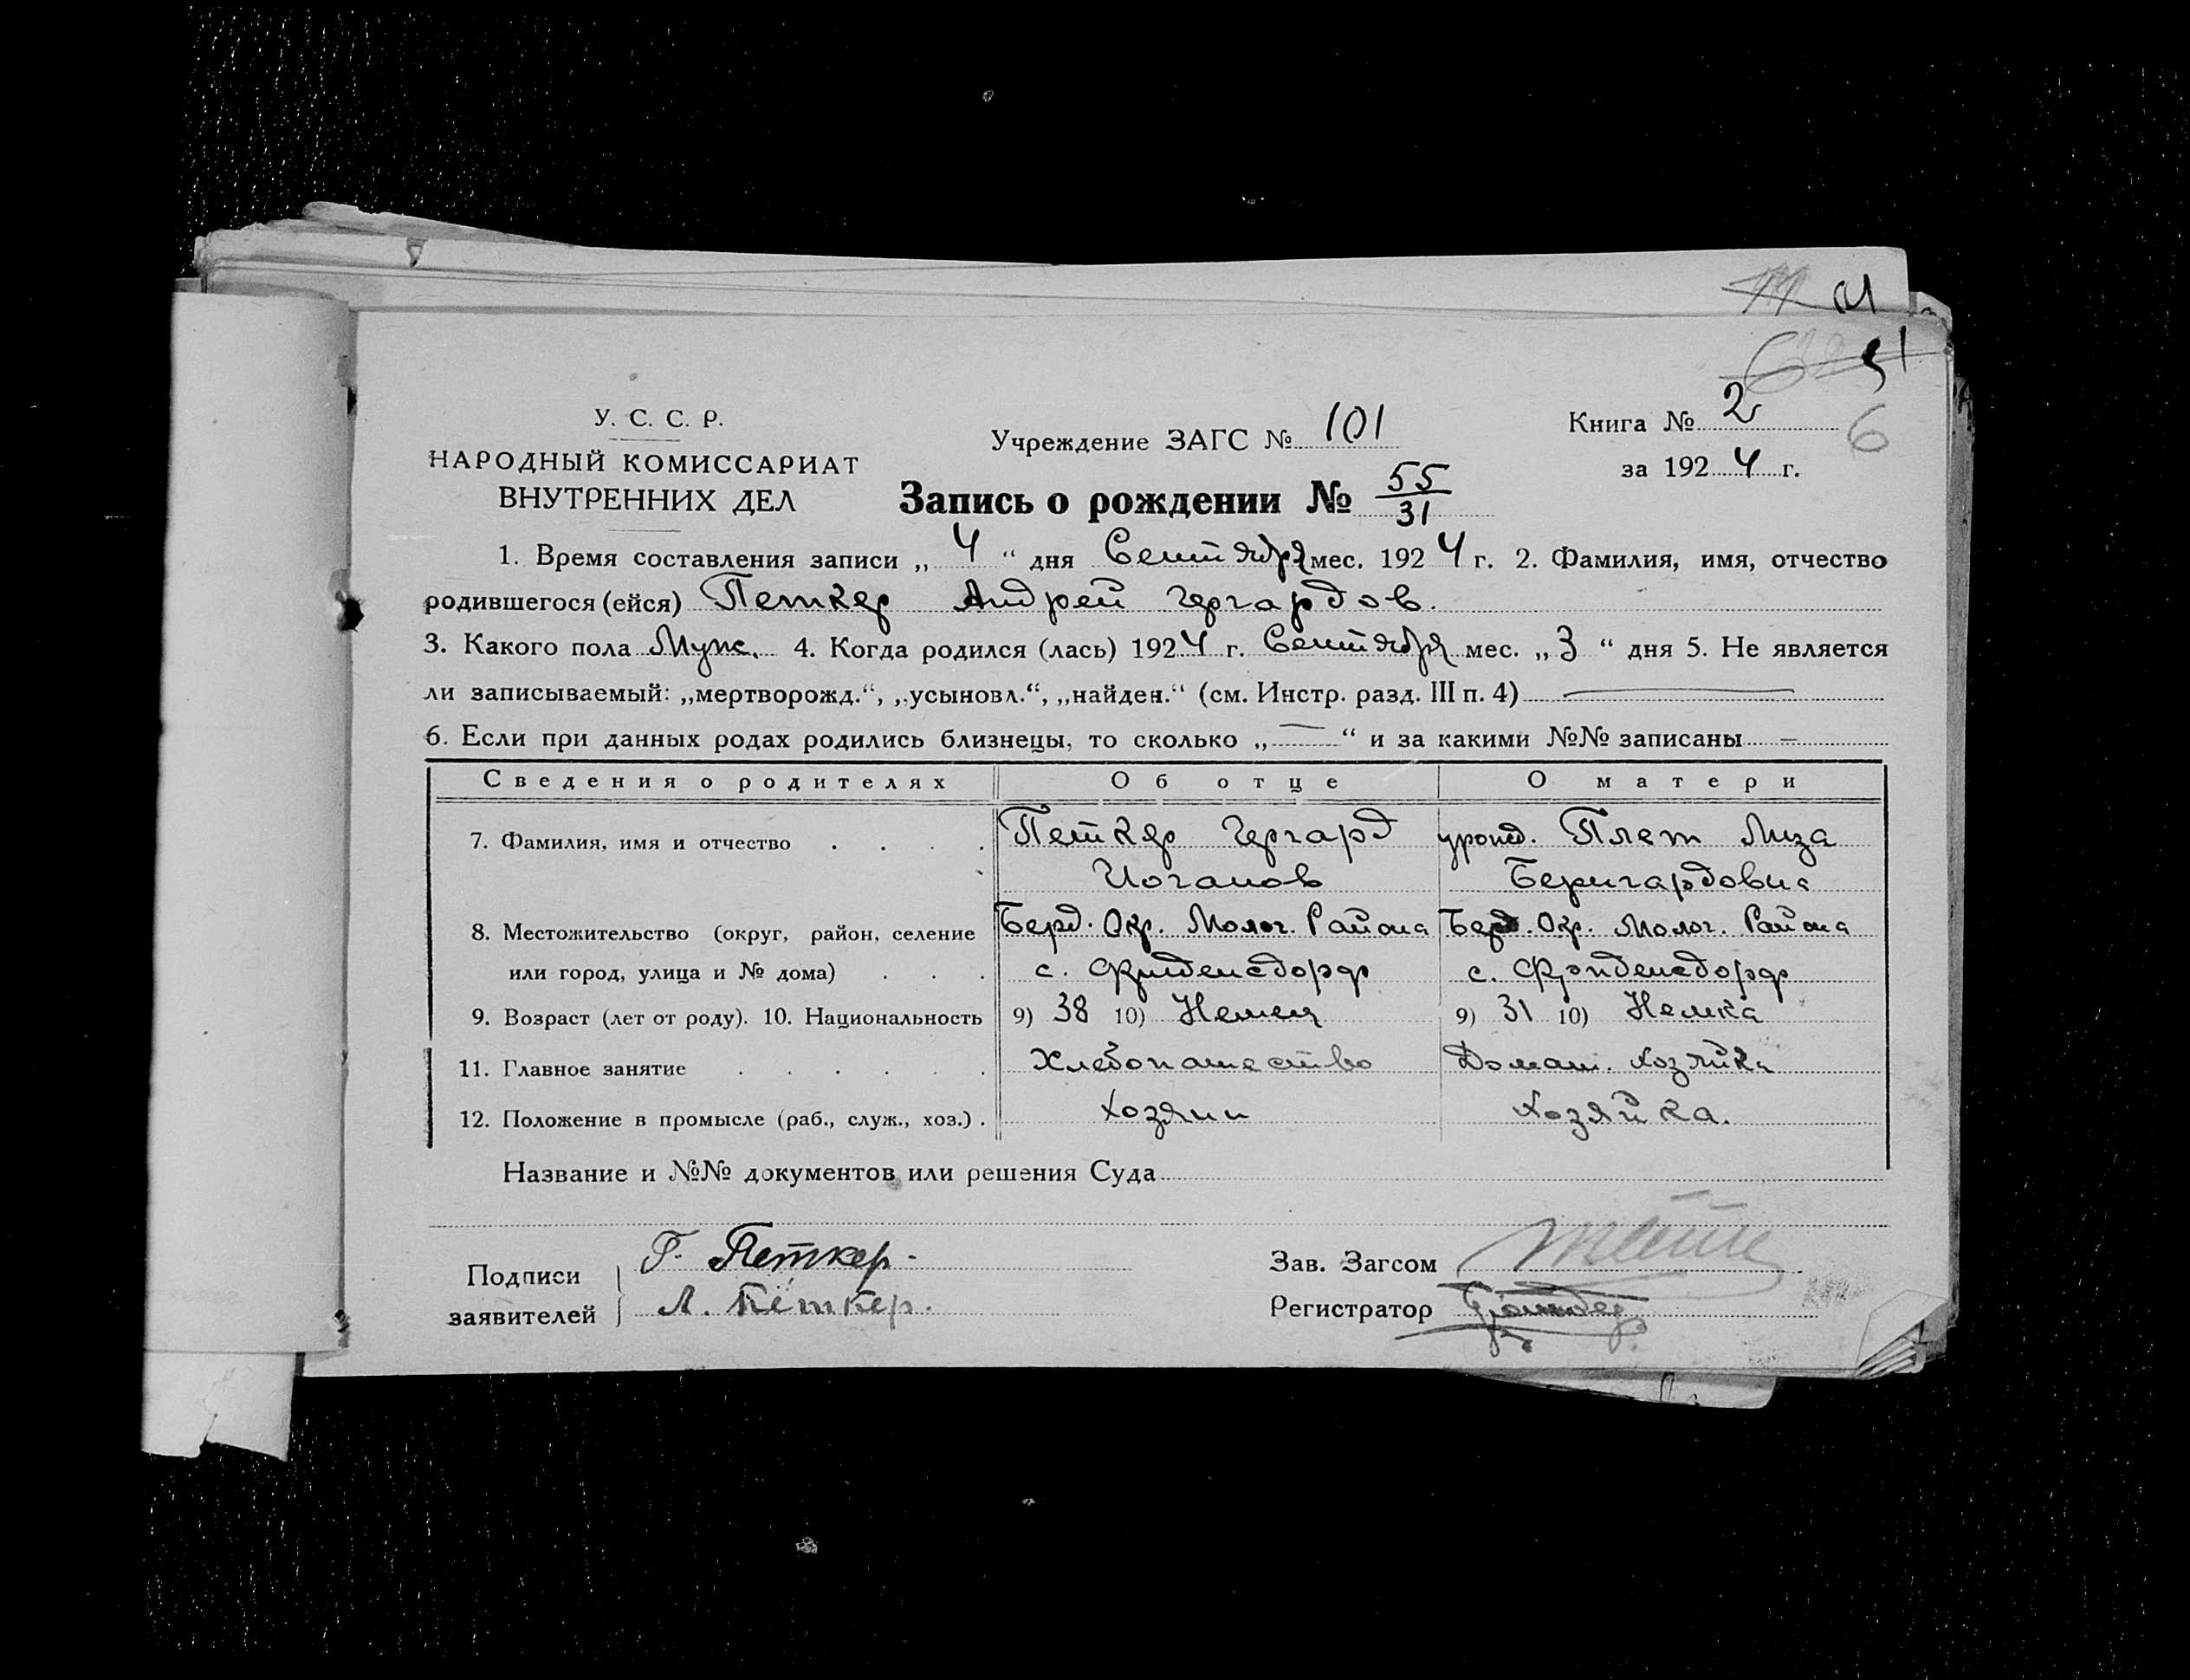 51
У. С. С. Р.
НАРОДНЫЙ КОМИССАРИАТ
ВНУТРЕННИХ ДЕЛ
Учреждение ЗАГС № 101
Книга № 2
6
за 1924 г.
Запись о рождении № 55/31
1. Время составления записи „ 4 “ дня Сентября мес. 1924 г. 2. Фамилия, имя, отчество
родившегося (ейся) Петкер Андрей Гергардов.
3. Какого пола Муж. 4. Когда родился (лась) 1924 г. Сентября мес. „ 3 “ дня 5. Не является
ли записываемый: „мертворожд.“, „усыновл.“, „найден.“ (см. Инстр. разд. III п. 4) —
6. Если при данных родах родились близнецы, то сколько „ — “ и за какими №№ записаны —
Сведения о родителях Об отце О матери
7. Фамилия, имя и отчество . . . . Петкер Гергард урожд. Плет Лиза
Иоганов Бернгардовна
8. Местожительство (округ, район, селение Берд. Окр. Молоч. Района Берд. Окр. Молоч. Района
или город, улица и № дома) . . . с. Фриденсдорф с. Фриденсдорф
9. Возраст (лет от роду). 10. Национальность 9) 38 10) Немец 9) 31 10) Немка
11. Главное занятие . . . . . . Хлебопашество Домаш. хозяйка
12. Положение в промысле (раб., служ., хоз.) . Хозяин Хозяйка.
Название и №№ документов или решения Суда
Подписи Г. Петкер. Зав. Загсом
заявителей Л. Петкер. Регистратор